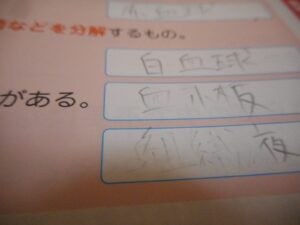 赤血球
などを分解するもの。
白血球
がある。
血小板
組織夜